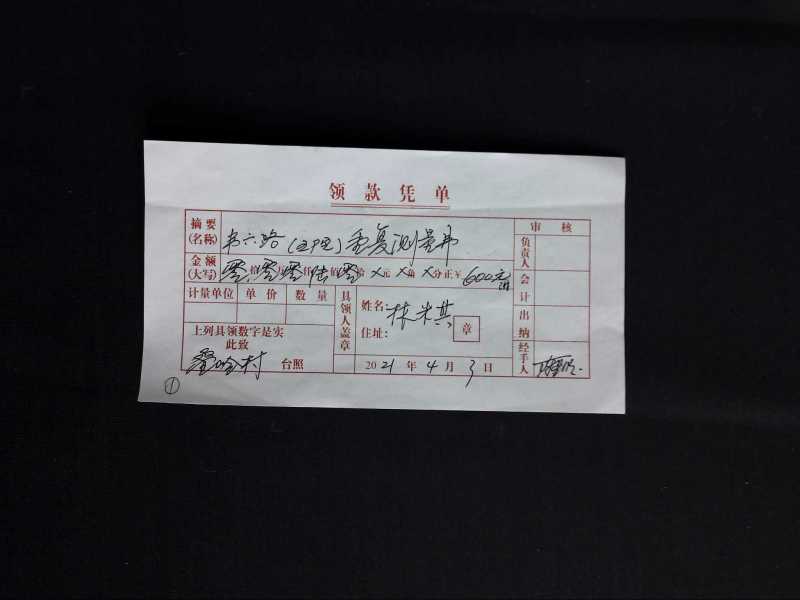 领款凭单
摘要(名称) 六路 重复测量 审核
金额(大写) 零拾零万零仟陆佰零拾×元×角×分正¥600元 负责人
计量单位 单价 数量 具领人盖章 姓名: 林米其 会计
住址: 章 出纳
上列具领数字是实
此致
岭村 台照 2021年4月3日 经手人
①